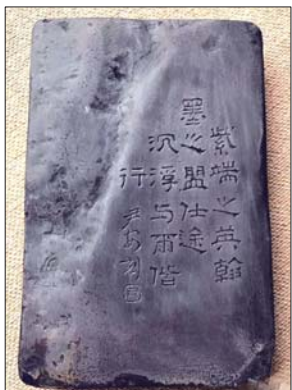 紫端之英翰
墨之盟仕途
沉浮与爾偕
行